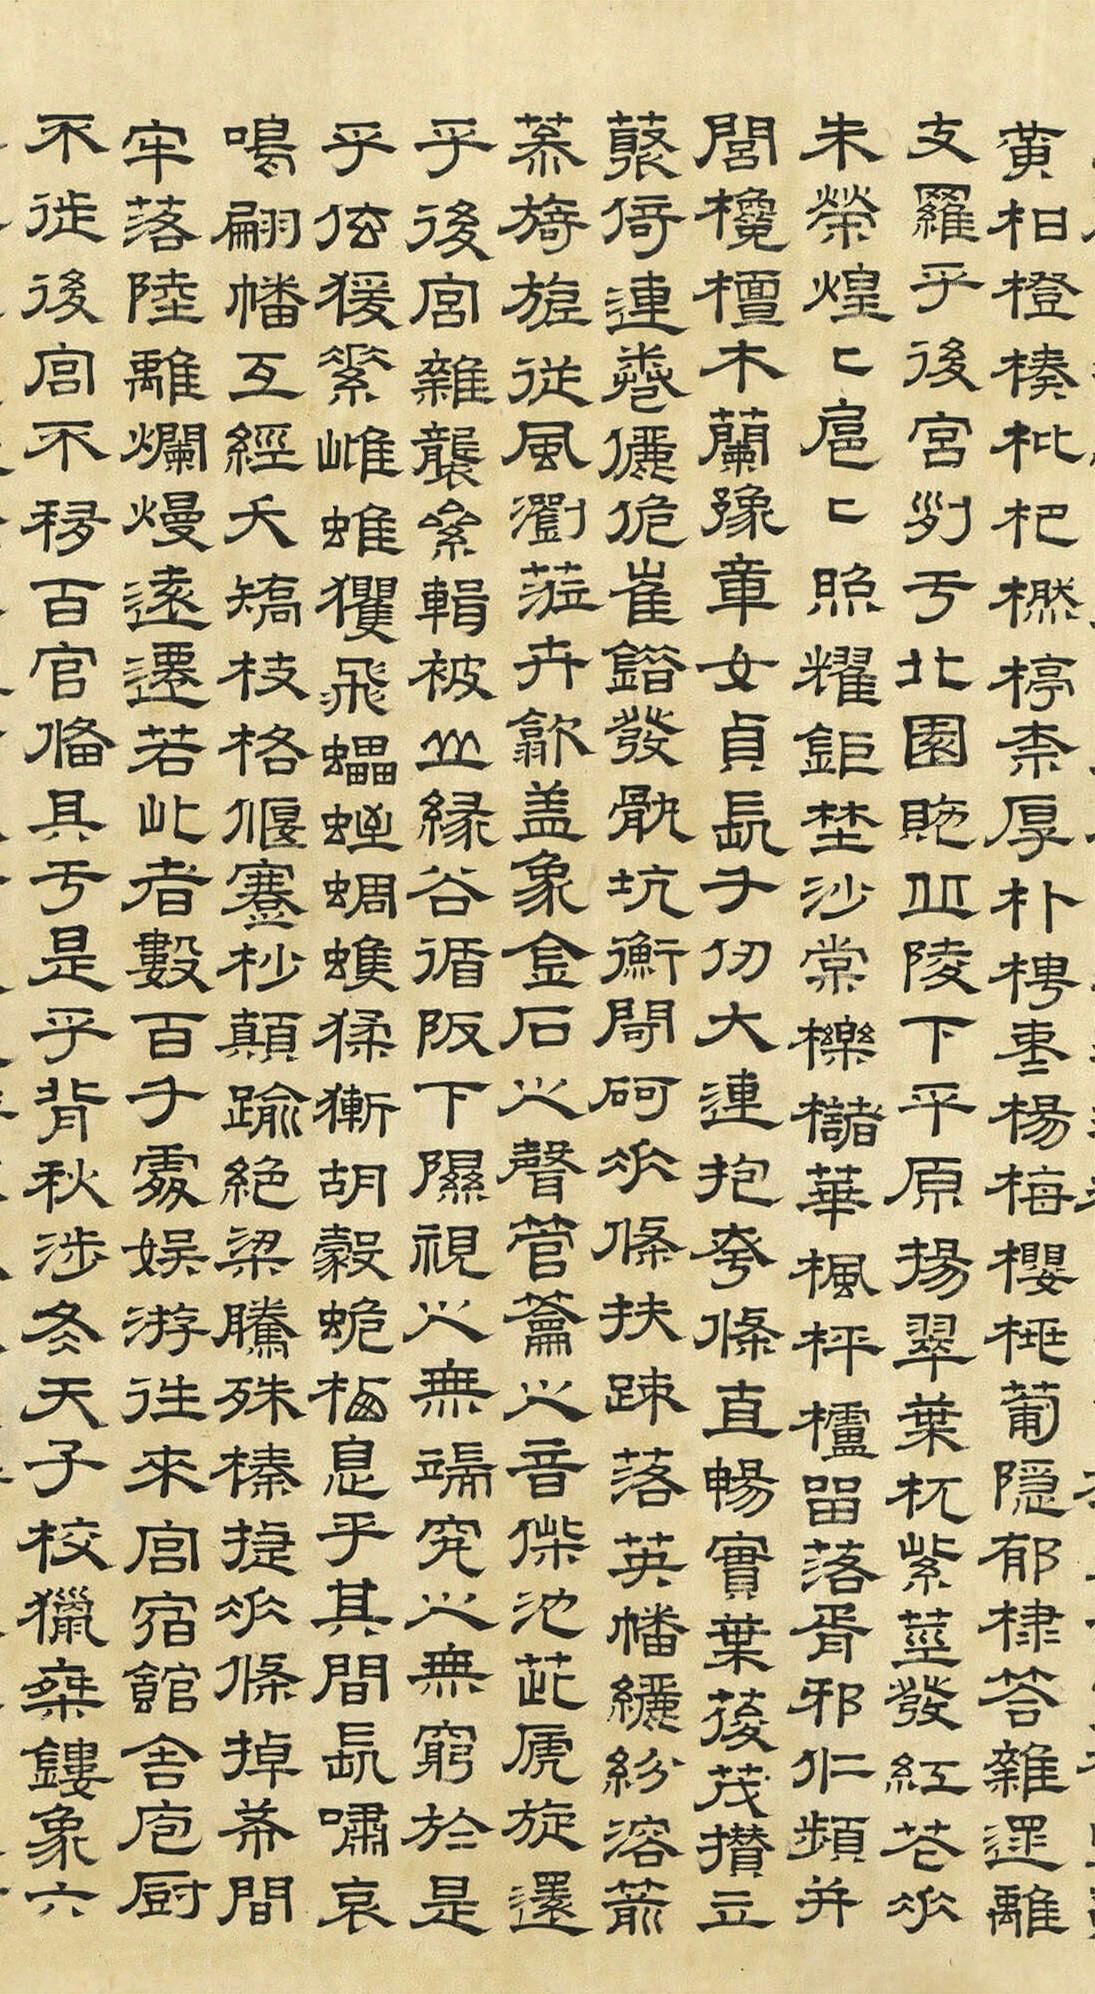 黃柑橙楱枇杷橪楟柰厚朴梬棗楊梅櫻桃葡隱郁棣荅雜遝離
支羅乎後宮列于北園貤丘陵下平原揚翠葉杌紫莖發紅花垂
朱榮煌〻扈〻照耀鉅埜沙棠櫟櫧華楓枰櫨留落胥邪仁頻并
閭欃檀木蘭豫章女貞長千仞大連抱夸條直暢實葉葰茂攢立
藂倚連卷儷佹崔錯發骩坑衡閜砢垂條扶疎落英幡纚紛溶萷
蔘旖旎從風瀏蒞卉歙盖象金石之聲管籥之音偨池茈虒旋還
乎後宮雜襲絫輯被山緣谷循阪下隰視之無端究之無窮於是
乎玄猨素雌蜼玃飛蠝蛭蜩蠼猱獑胡豰蛫栖息乎其間長嘯哀
鳴翩幡互經夭矯枝格偃蹇杪顛踰絕梁騰殊榛捷垂條掉希間
牢落陸離爛熳遠遷若此者數百千處娛游往來宮宿館舍庖厨
不徙後宮不移百官備具于是乎背秋涉冬天子校獵乘鏤象六